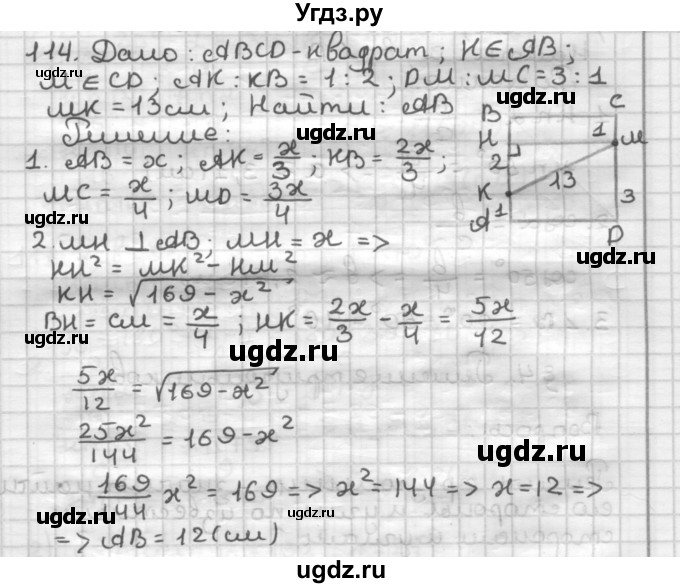 Угдз.ру
114. Дано: ABCD - квадрат; K∈AB;
M∈CD; AK:KB = 1:2; DM:MC = 3:1
MK = 13 см; Найти: AB
Решение:
1. AB = x; AK = x/3; KB = 2x/3;
MC = x/4; MD = 3x/4
B C
H 1 M
2
K 13 3
A 1 D
2. MH ⊥ AB; MH = x =>
KH² = MK² - HM²
KH = √169 - x²
BH = CM = x/4; HK = 2x/3 - x/4 = 5x/12
5x/12 = √169 - x²
25x²/144 = 169 - x²
169/144 x² = 169 => x² = 144 => x = 12 =>
=> AB = 12 (см)
ugdz.ru
ugdz.ru
ugdz.ru
ugdz.ru
ugdz.ru
ugdz.ru
ugdz.ru
ugdz.ru
ugdz.ru
ugdz.ru
ugdz.ru
ugdz.ru
ugdz.ru
ugdz.ru